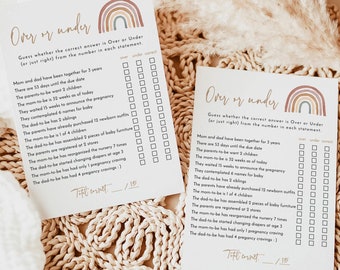 Over or under
Guess whether the correct answer is Over or Under
(or just right) from the number in each statement.
over under correct
Mom and dad have been together for 5 years
There are 53 days until the due date
The parents-to-be want 2 children
The mom-to-be is 32 weeks as of today
They waited 15 weeks to announce the pregnancy
They contemplated 4 names for baby
The dad-to-be has 6 siblings
The parents have already purchased 10 newborn outfits
The mom-to-be is 1 of 4 children
The dad-to-be has assembled 2 pieces of baby furniture
The parents are registered at 2 stores
The mom-to-be has reorganized the nursery 7 times
The dad-to-be started changing diapers at age 3
The mom-to-be has had only 1 pregnancy craving
The dad-to-be has had 4 pregnancy cravings :)
Total correct
Over or under
Guess whether the correct answer is Over or Under
(or just right) from the number in each statement.
over under correct
Mom and dad have been together for 5 years
There are 53 days until the due date
The parents-to-be want 2 children
The mom-to-be is 32 weeks as of today
They waited 15 weeks to announce the pregnancy
They contemplated 4 names for baby
The dad-to-be has 6 siblings
The parents have already purchased 10 newborn outfits
The mom-to-be is 1 of 4 children
The dad-to-be has assembled 2 pieces of baby furniture
The parents are registered at 2 stores
The mom-to-be has reorganized the nursery 7 times
The dad-to-be started changing diapers at age 3
The mom-to-be has had only 1 pregnancy craving
The dad-to-be has had 4 pregnancy cravings :)
Total correct